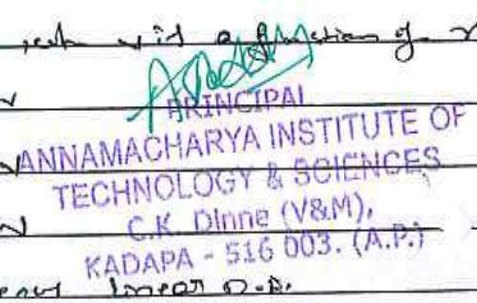 a function of
PRINCIPAL
ANNAMACHARYA INSTITUTE OF
TECHNOLOGY & SCIENCES
C.K. Dinne (V&M),
KADAPA - 516 003. (A.P.)
linear D.E.